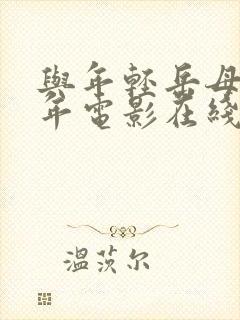 與年輕岳母
年電影在綫
溫茨尔